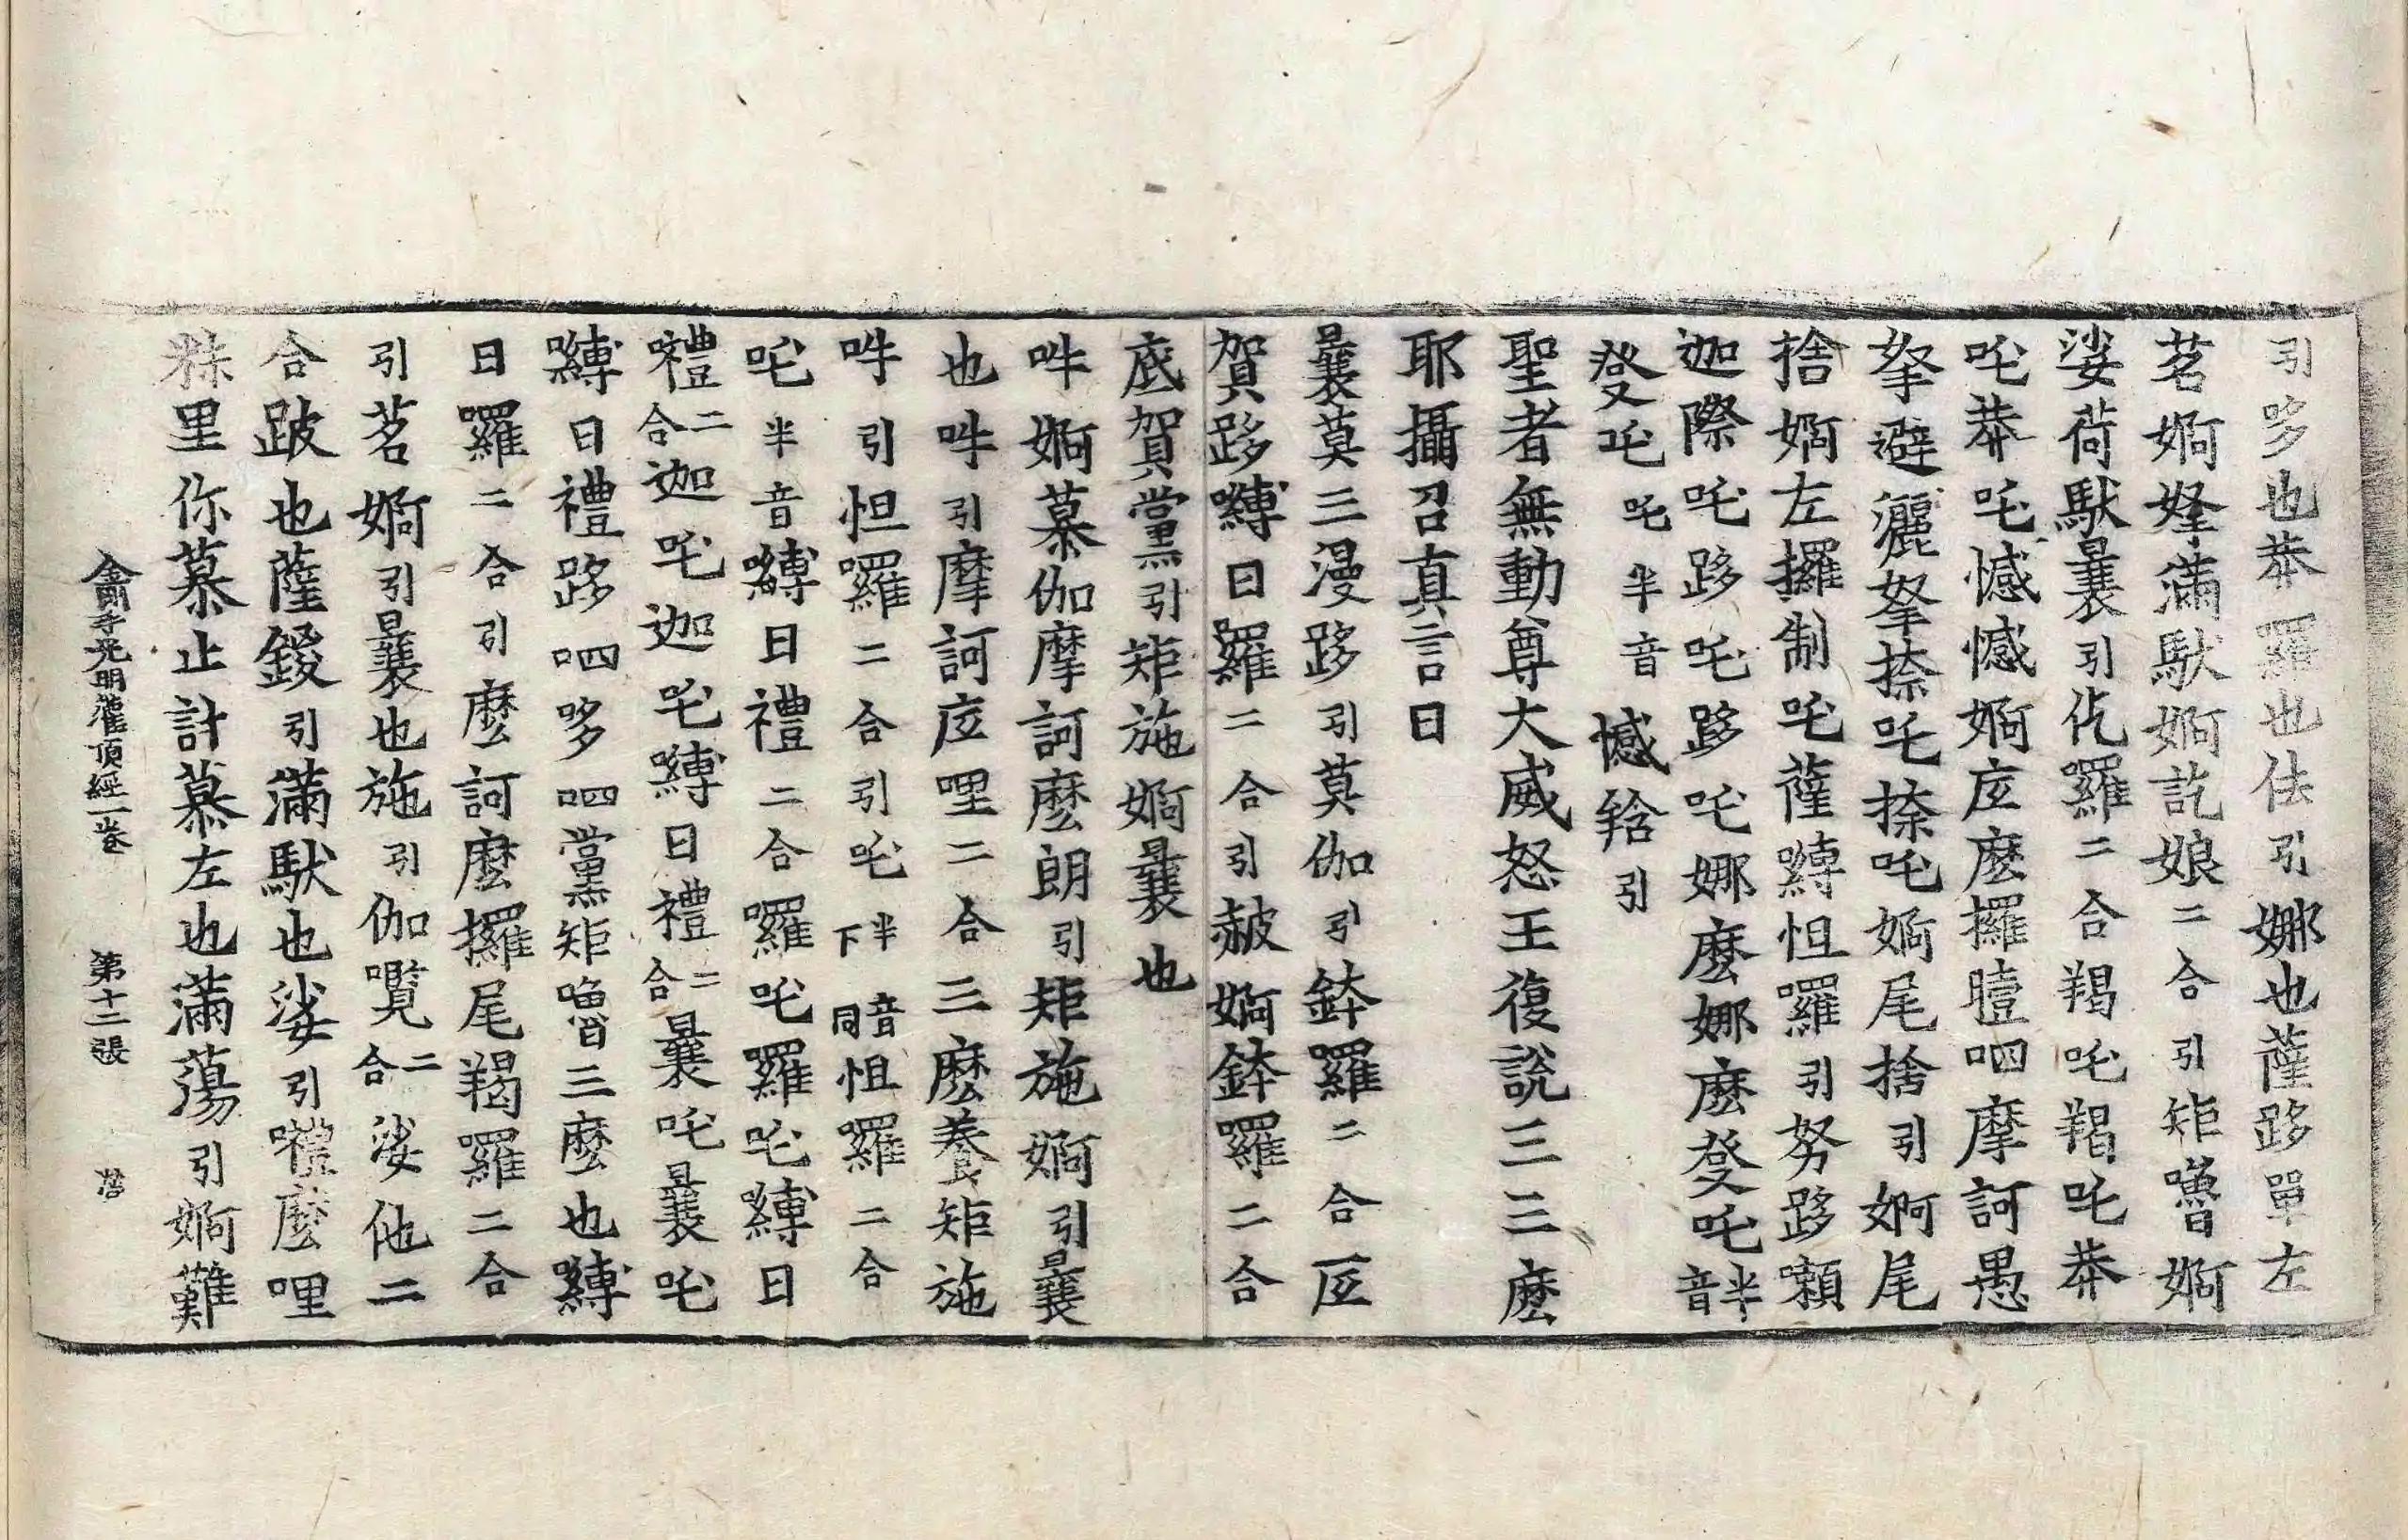 引哆也莽羅也佉引娜也薩跢單左
茗婀拏滿馱婀訖娘二合引矩嚕婀
娑荷馱曩引仡羅二合羯吒羯吒莽
吒莽吒憾憾婀庢麼攞曀呬摩訶愚
拏避灑拏捺吒捺吒婀尾捨引婀尾
捨婀左攞制吒薩嚩怛囉引努跢嚬
迦際吒跢吒跢吒娜麼娜麼發吒半音
發吒吒半音憾𤚥引
聖者無動尊大威怒王復說三三麼
耶攝召真言曰
曩莫三漫跢引莫伽引鉢羅二合底
賀跢嚩曰羅二合引赧婀鉢羅二合
底賀黨引矩施婀曩也
吽婀慕伽摩訶麼朗引矩施婀引曩
也吽引摩訶庢哩二合三麼養矩施
吽引怛羅二合引吒半音下同怛羅二合
吒半音嚩日禮二合囉吒羅吒嚩日
禮二合迦吒迦吒嚩日禮二合曩吒曩吒
嚩日禮跢呬哆呬黨矩嚕三麼也嚩
日羅二合引麼訶麼攞尾羯羅二合
引茗婀引曩也施引伽㘕二合娑他二
合跛也薩鍐引滿馱也娑引禮麼哩
祩里你慕止計慕左也滿蕩引婀難
金剛手光明灌頂經一卷 第十二張